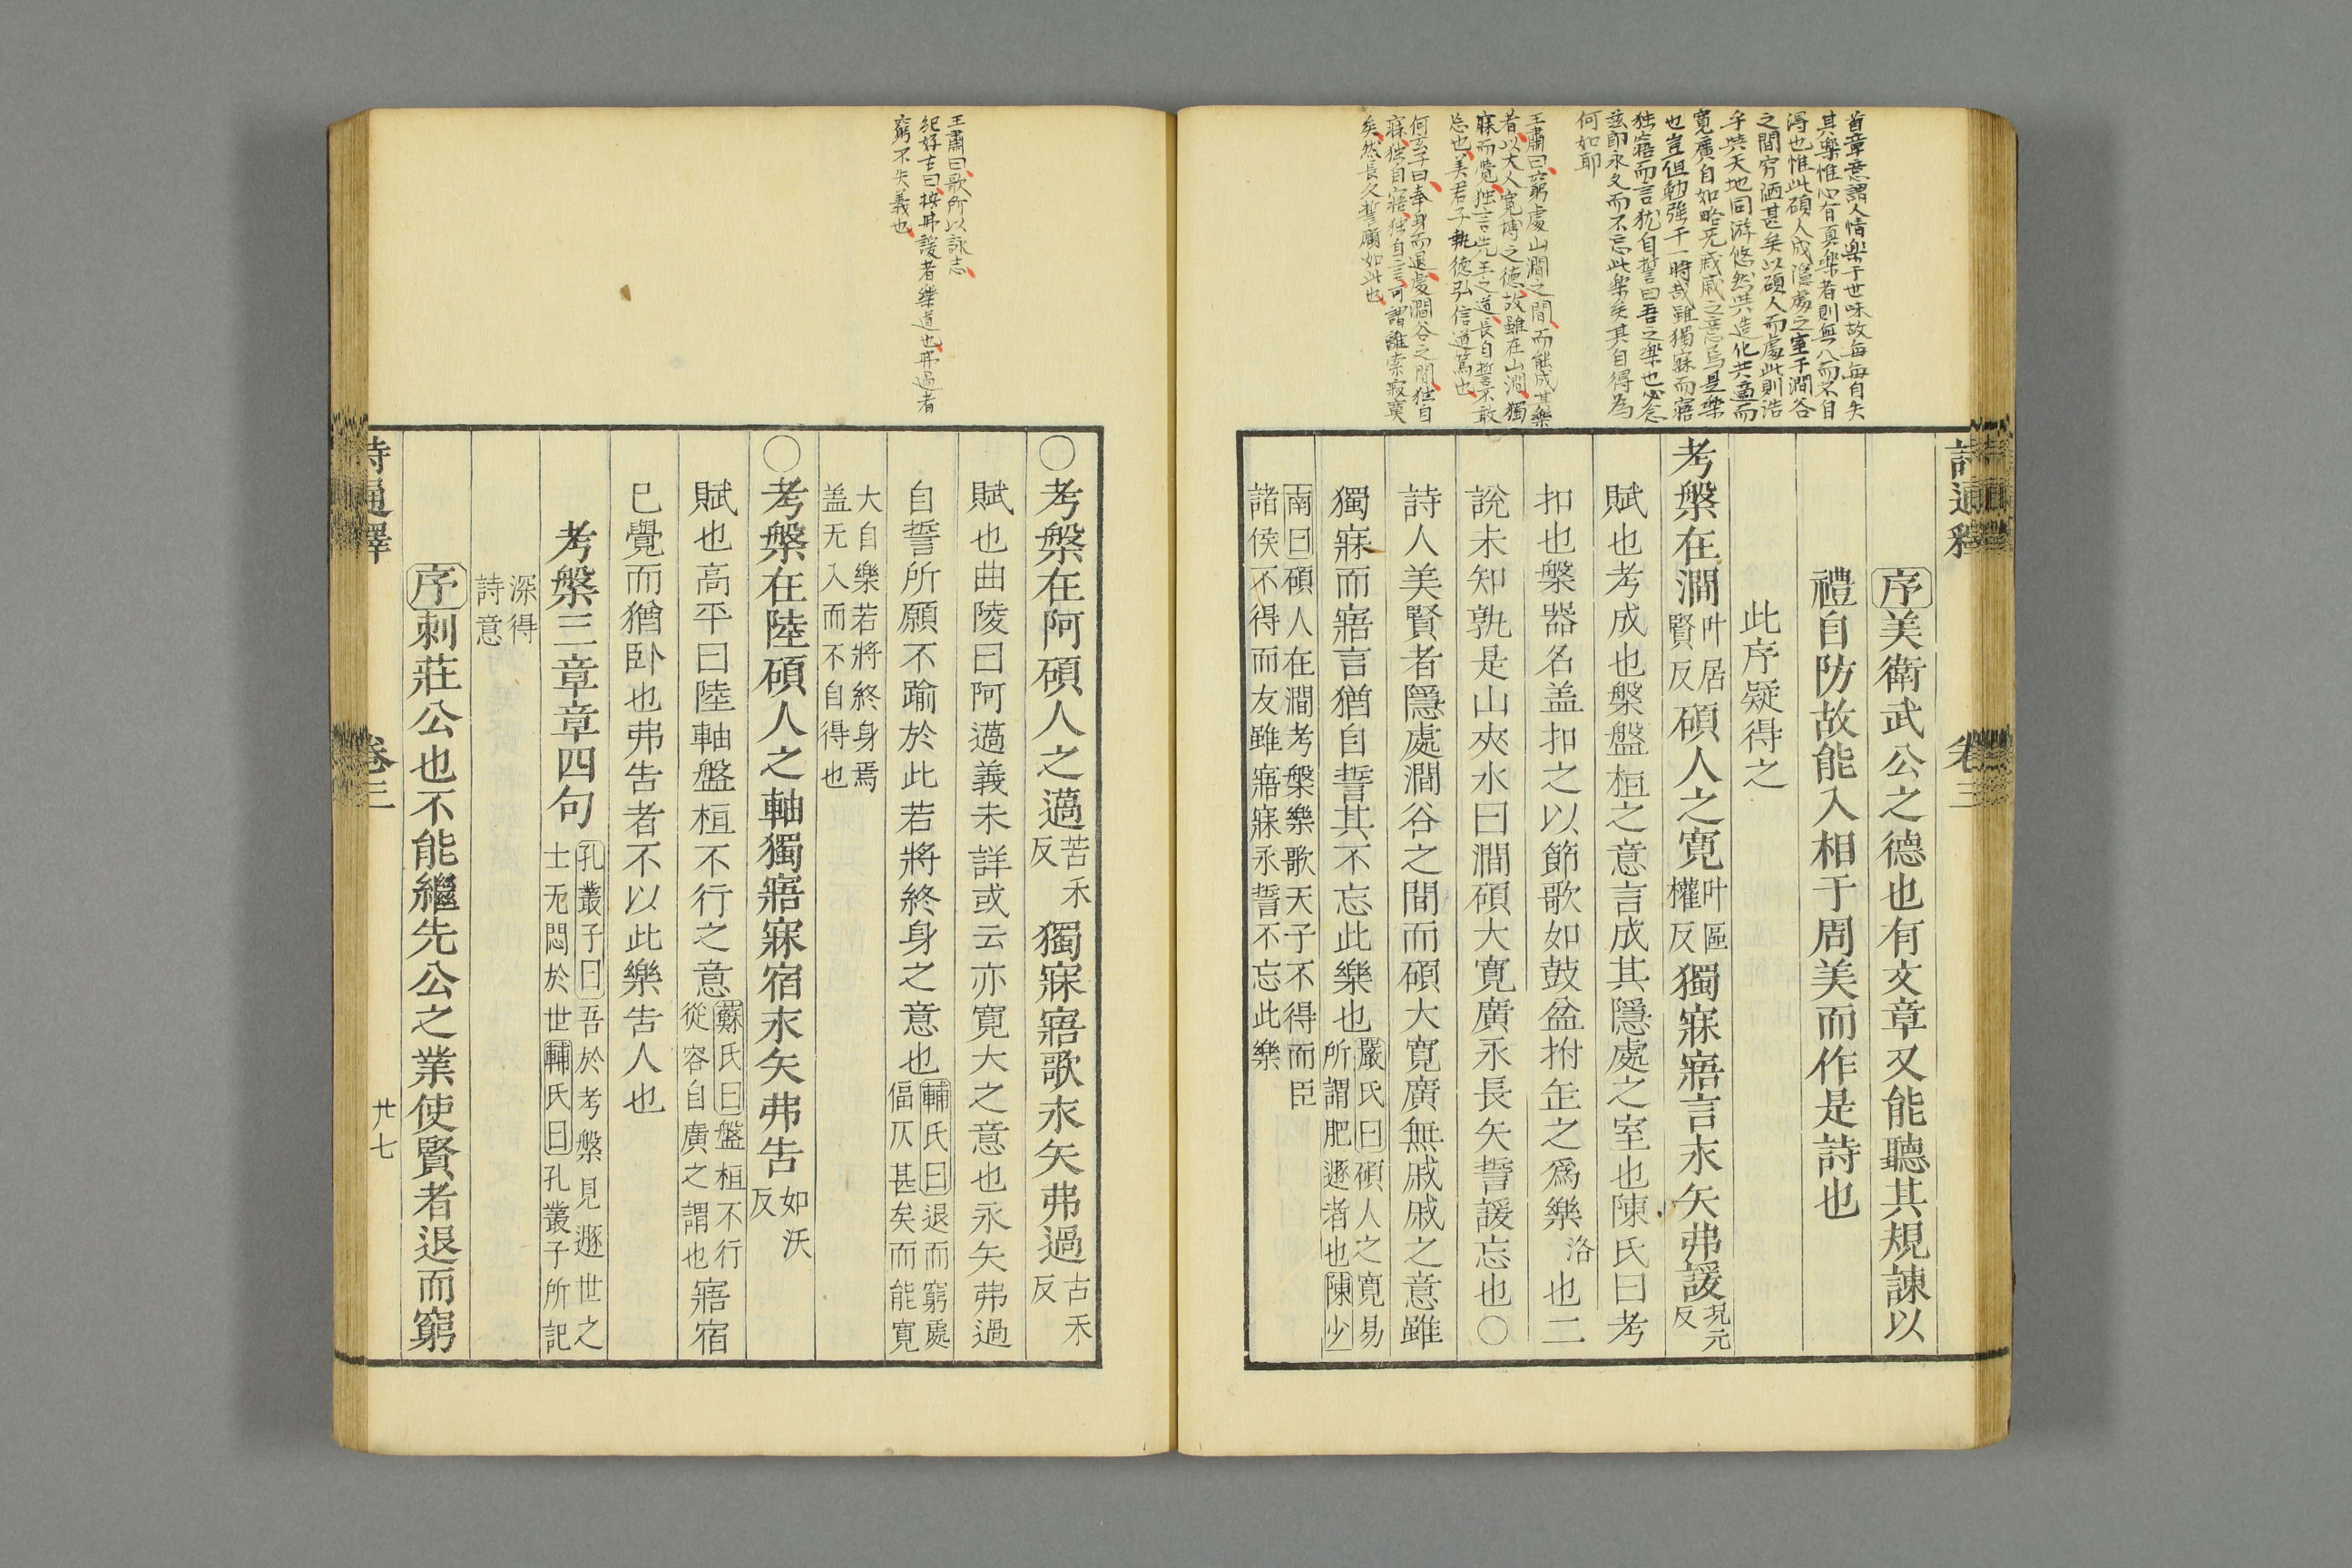 首章意謂人情樂于世味故每每自失
其樂惟心有真樂者則無入而不自
得也惟此碩人成隱處之室于澗谷
之間穷陋甚矣以碩人而處此則浩
乎與天地同游悠然共造化共適而
寬廣自如略无戚戚之意焉是樂
也豈但勉強于一時哉雖獨寐而寤
独寤而言犹自誓曰吾之楽也
茲即永久而不忘此楽矣其自得為
何如耶
王肅曰窮處山澗之間而能成其樂
者以大人寬博之德故雖在山澗獨
寐而覺独言先王之道長自誓不敢
忘也美君子執德弘信道篤也
何玄子曰奉身而退處澗谷之間独自
寐独自寤独自言可謂離索寂寞
矣然長久誓願如此也
詩通釋 卷三
序美衛武公之德也有文章又能聽其規諫以
禮自防故能入相于周美而作是詩也
此序疑得之
考槃在澗叶居賢反碩人之寛叶區權反獨寐寤言永矢弗諼况元反
賦也考成也槃盤桓之意言成其隱處之室也陳氏曰考
扣也槃器名盖扣之以節歌如鼓盆拊缶之爲樂洛也二
說未知孰是山夾水曰澗碩大寛廣永長矢誓諼忘也〇
詩人美賢者隱處澗谷之間而碩大寛廣無戚戚之意雖
獨寐而寤言猶自誓其不忘此樂也嚴氏曰碩人之寛易
所謂肥遯者也陳少
南曰碩人在澗考槃樂歌天子不得而臣
諸侯不得而友雖寤寐永誓不忘此樂
王肅曰歌所以詠志
紀好古曰按弗諼者樂道也弗過者
窮不失義也
〇考槃在阿碩人之薖苦禾反獨寐寤歌永矢弗過古禾反
賦也曲陵曰阿薖義未詳或云亦寛大之意也永矢弗過
自誓所願不踰於此若將終身之意也輔氏曰退而窮處
偪仄甚矣而能寛
大自樂若將終身焉
盖无入而不自得也
〇考槃在陸碩人之軸獨寤寐宿永矢弗告如沃反
賦也高平曰陸軸盤桓不行之意蘇氏曰盤桓不行
從容自廣之謂也寤宿
已覺而猶臥也弗告者不以此樂告人也
考槃三章章四句孔叢子曰吾於考槃見遯世之
士无悶於世輔氏曰孔叢子所記
深得
詩意
序刺莊公也不能繼先公之業使賢者退而窮
詩通釋 卷三 廿七